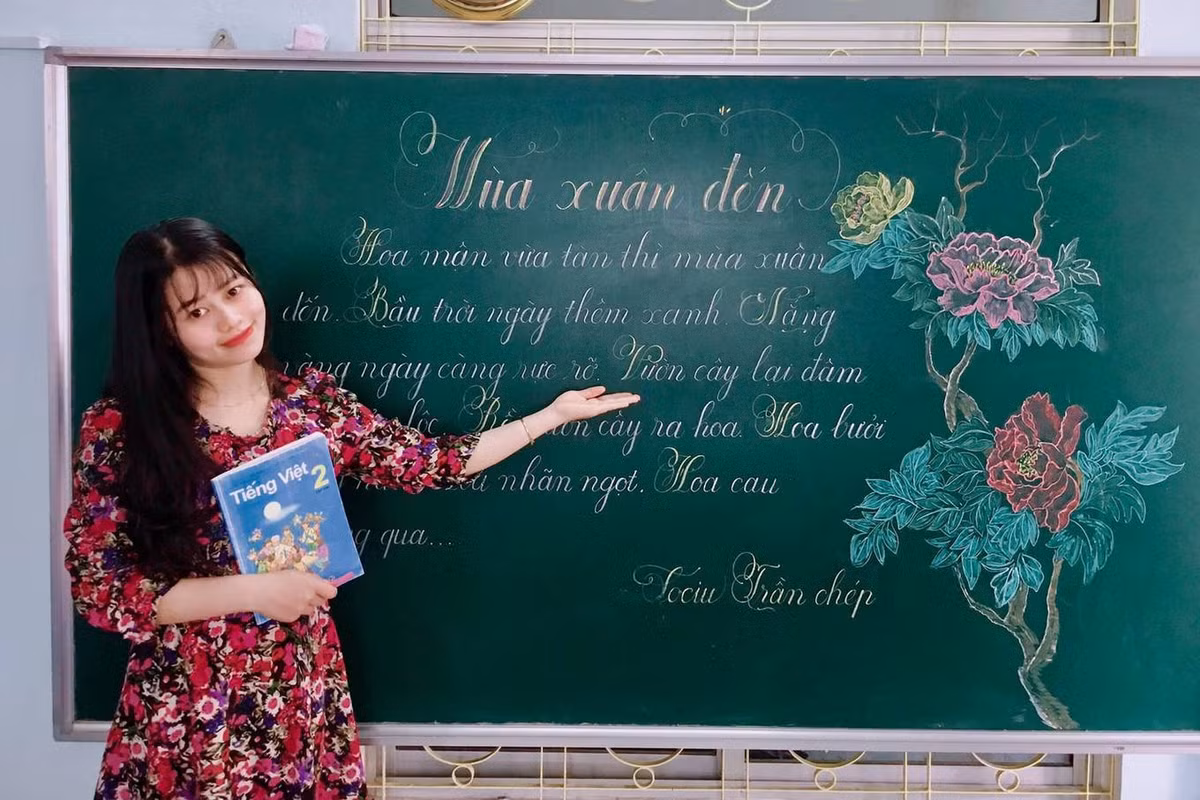 Mùa xuân đến
Hoa mận vừa tàn thì mùa xuân
đến. Bầu trời ngày thêm xanh. Nắng
vàng ngày càng rực rỡ. Vườn cây lại đâm
lộc. vườn cây ra hoa. Hoa bưởi
nhãn ngọt. Hoa cau
qua...
Tociu Trần chép
Tiếng Việt 2